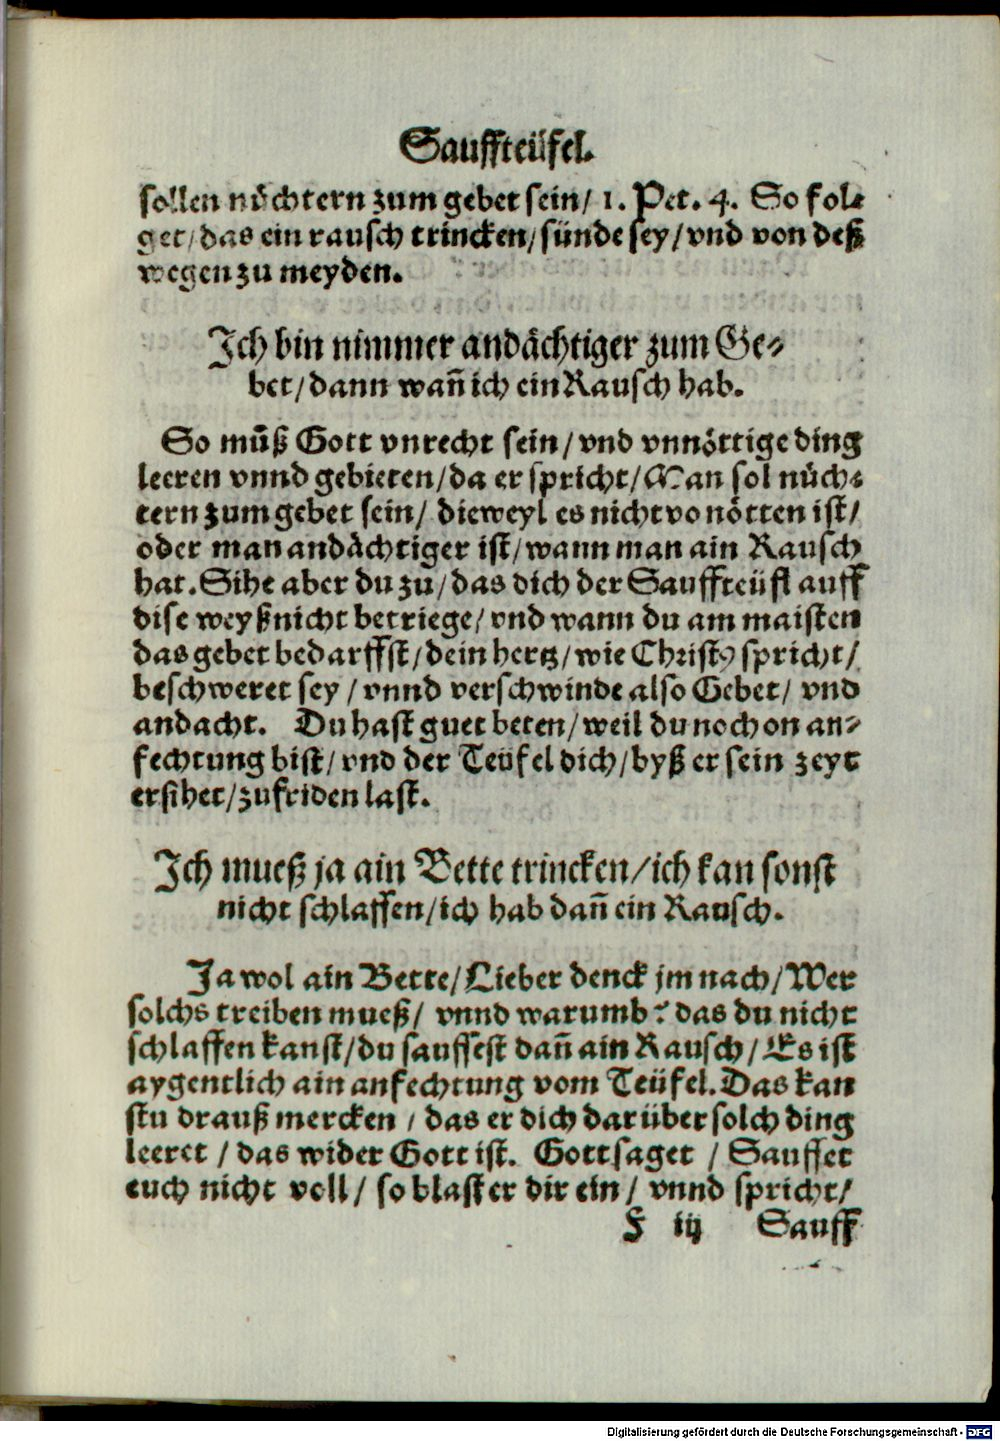 Sauffteüfel.
sollen nüchtern zum gebet sein/ 1. Pet. 4. So fol⸗
get/ das ein rausch trincken/ sünde sey/ vnd von deß
wegen zu meyden.
Ich bin nimmer andächtiger zum Ge⸗
bet/ dann wañ ich ein Rausch hab.
So mũß Gott vnrecht sein/ vnd vnnöttige ding
leeren vnnd gebieten/ da er spricht/ Man sol nüch⸗
tern zum gebet sein/ dieweyl es nicht vo nötten ist/
oder man andächtiger ist/ wann man ain Rausch
hat. Sihe aber du zu/ das dich der Sauffteüfl auff
dise weyß nicht betriege/ vnd wann du am maisten
das gebet bedarffst/ dein hertz/ wie Christꝰ spricht/
beschweret sey/ vnnd verschwinde also Gebet/ vnd
andacht. Du hast guet beten/ weil du noch on an⸗
fechtung bist/ vnd der Teüfel dich/ byß er sein zeyt
ersihet/ zufriden last.
Ich mueß ja ain Bette trincken/ ich kan sonst
nicht schlaffen/ ich hab dañ ein Rausch.
Ja wol ain Bette/ Lieber denck jm nach/ Wer
solchs treiben mueß/ vnnd warumb? das du nicht
schlaffen kanst/ du sauffest dañ ain Rausch/ Es ist
aygentlich ain anfechtung vom Teüfel. Das kan
stu drauß mercken/ das er dich darüber solch ding
leeret/ das wider Gott ist. Gott saget/ Sauffet
euch nicht voll/ so blast er dir ein/ vnnd spricht/
F iij Sauff
Digitalisierung gefördert durch die Deutsche Forschungsgemeinschaft - DFG